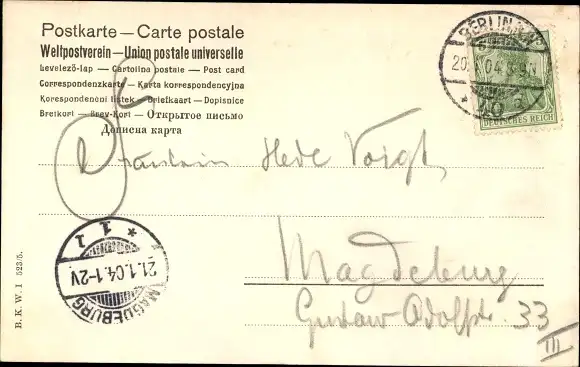 Postkarte — Carte postale
Weltpostverein — Union postale universelle
Levelező-lap — Cartolina postale — Post card
Correspondenzkarte — Karta korrespondencyjna
Korespondenční listek — Briefkaart — Dopisnice
Brevkort — Brev-Kort — Открытое письмо
Дописна карта
BERLIN
20. 1.04
DEUTSCHES REICH
Fräulein Hede Voigt,
Magdeburg
Gustav Adolfstr. 33
III
MAGDEBURG
21.1.04.1-2V
* 1 1
B. K. W. I 523/5.